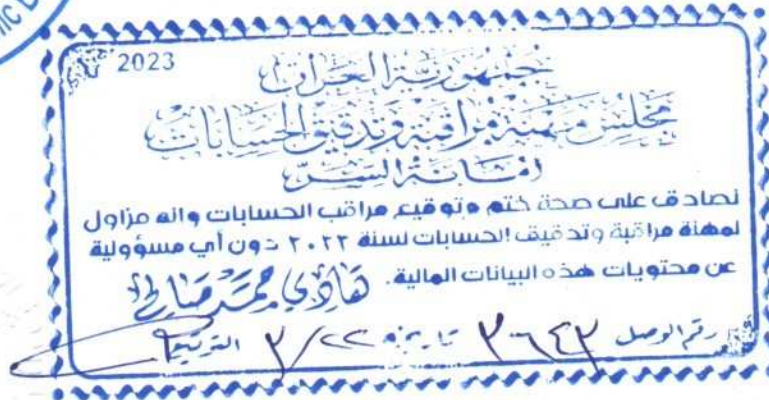 2023
جمهورية العراق
مجلس مهنة مراقبة وتدقيق الحسابات
امانة السر
نصادق على صحة ختم وتوقيع مراقب الحسابات وانه مزاول
لمهنة مراقبة وتدقيق الحسابات لسنة ٢٠٢٢ دون أي مسؤولية
عن محتويات هذه البيانات المالية. هادي حمد صالح
رقم الوصل ٣٦٤٣ تاريخه ٣/٢٢ التوقيع